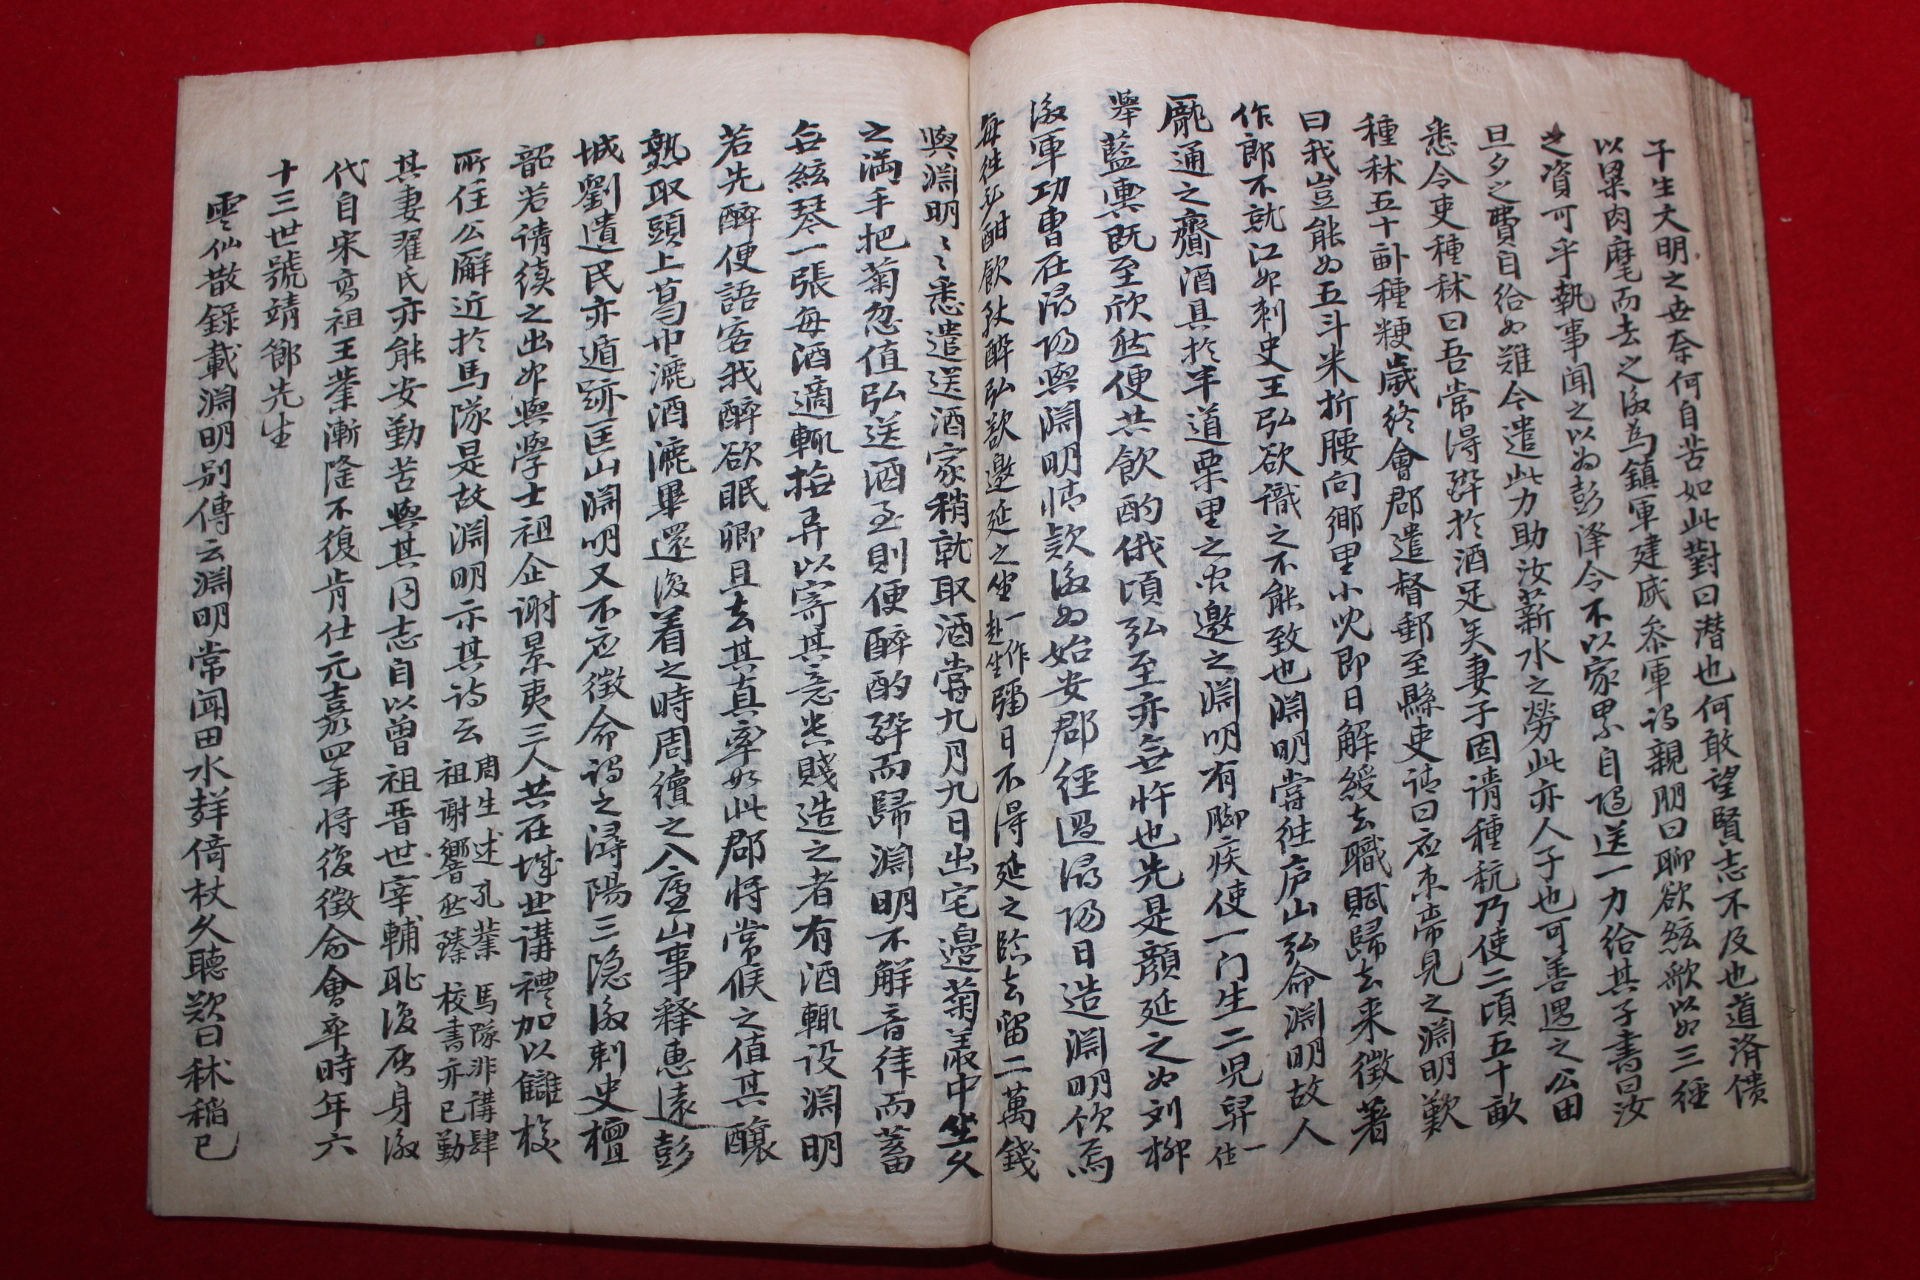 子生文明之世奈何自苦如此對曰潜也何敢望賢志不及也道済饋
以粱肉麾而去之後為鎮軍建威叅軍謂親朋曰聊欲絃歌以為三徑
之資可乎執事闻之以為彭泽令不以家累自随送一力给其子書曰汝
旦夕之費自给为難今遣此力助汝薪水之勞此亦人子也可善遇之公田
悉令吏種秫曰吾常得醉扵酒足矣妻子固请種秔乃使二頃五十畝
種秫五十畝種粳歲终會郡遣督郵至縣吏请曰应束帯見之淵明歎
曰我豈能为五斗米折腰向鄉里小兒即日解綬去職賦歸去来徵著
作郎不就江州刺史王弘欲識之不能致也淵明嘗徃庐山弘命淵明故人
龐通之齎酒具扵半道栗里之间邀之淵明有脚疾使一门生二児舁一作
轝籃輿既至欣然便共飲酌俄頃弘至亦無忤也先是顔延之为刘柳
後軍功曹在潯陽與淵明情款後为始安郡徑過潯陽日造淵明飲焉
每徃必酣飲致醉弘欲邀延之坐一作赴坐彌日不得延之臨去留二萬錢
與淵明〻悉遣送酒家稍就取酒嘗九月九日出宅邉菊叢中坐久
之满手把菊忽值弘送酒至則便醉酌醉而歸淵明不解音律而蓄
無絃琴一張每酒適輒撫弄以寄其意貴賤造之者有酒輒设淵明
若先醉便語客我醉欲眠卿且去其真率如此郡将常候之值其釀
熟取頭上葛巾漉酒漉畢還復着之時周續之入庐山事释惠遠彭
城劉遺民亦遁跡匡山淵明又不应徴命謂之潯陽三隐後刺史檀
韶若请續之出州與学士祖企谢景夷三人共在城北講禮加以讎校
所住公廨近扵馬隊是故淵明示其诗云周生述孔業祖谢響然臻馬隊非講肆校書亦已勤
其妻翟氏亦能安勤苦與其同志自以曾祖晋世宰輔耻復屈身後
代自宋高祖王業漸隆不復肯仕元嘉四年将復徴命會卒時年六
十三世號靖節先生
雲仙散錄載淵明别傳云淵明常闻田水聲倚杖久聽歎曰秫稻已